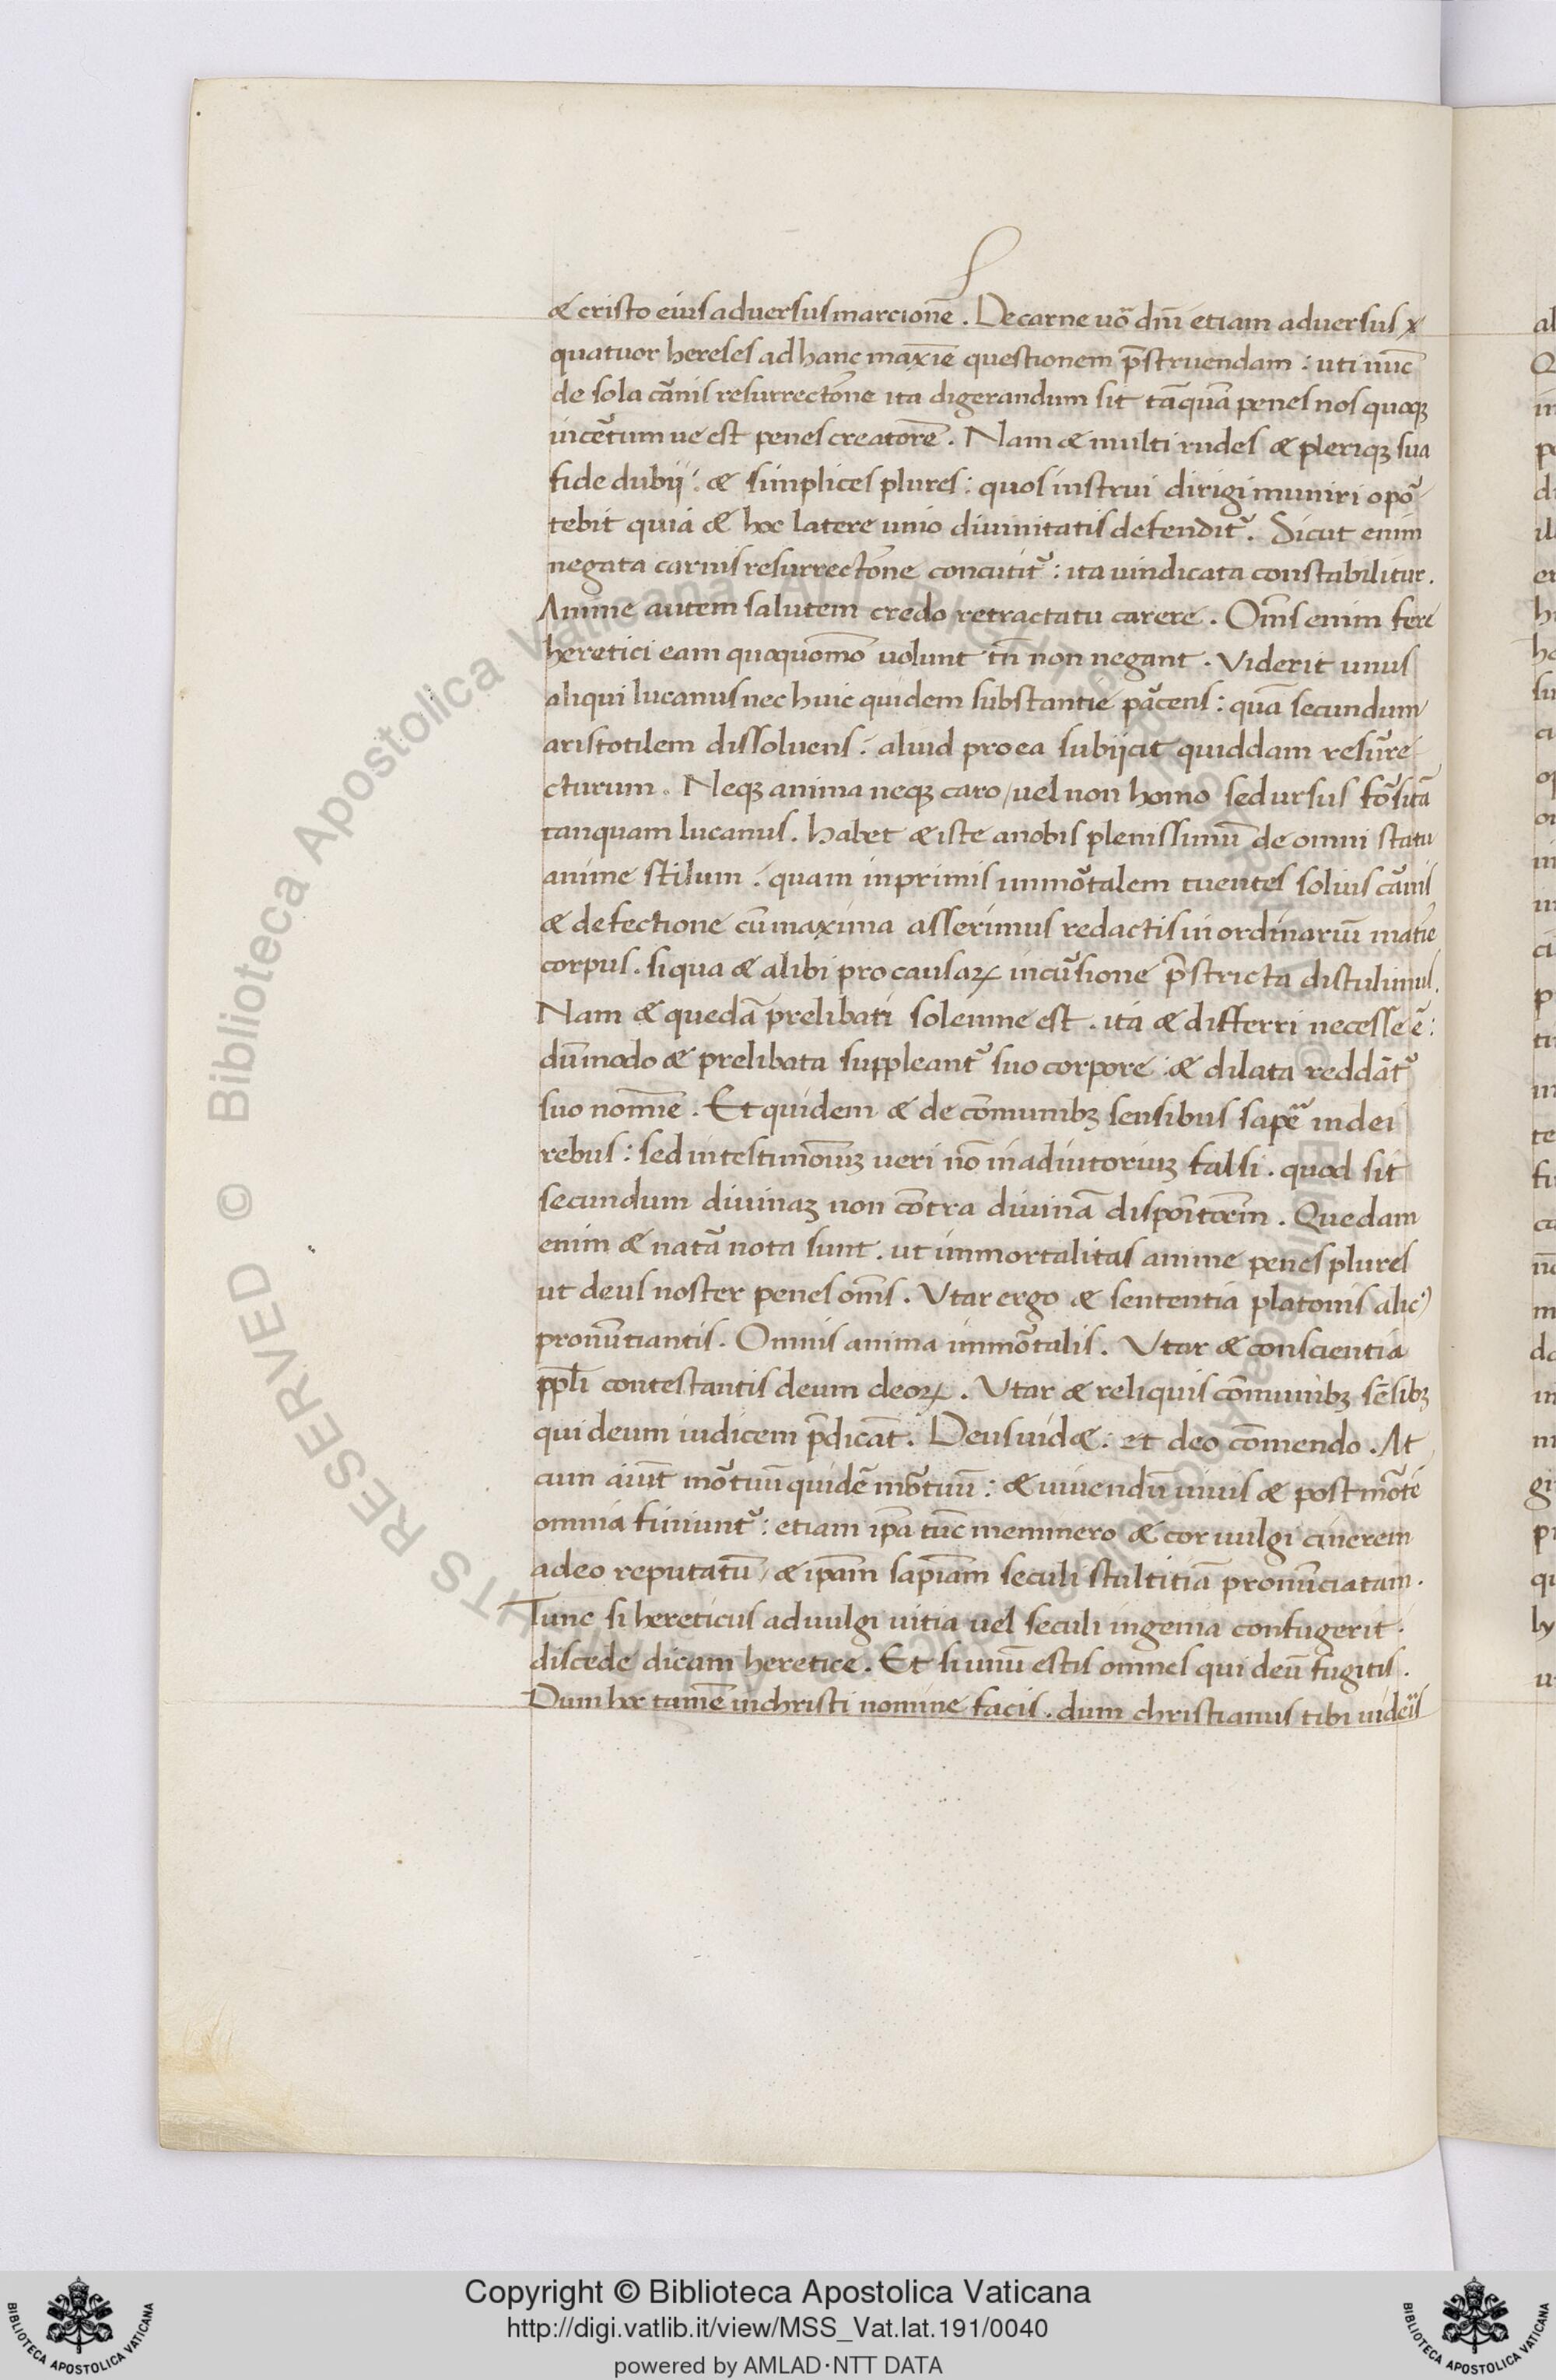 & cristo eius adversus marcionē. De carne uō dnī etiam adversus x
quatuor hereses ad hanc maxīe questionem p̄struendam: uti nūc
de sola cānis resurrectōne ita digerandum sit tāquā penes nos quoqꝫ
incētum ue est penes creatorē. Nam & multi rudes & pleriqꝫ sua
fide dubij: & simplices plures: quos instrui dirigi muniri opō
tebit quia & hoc latere unio divinitatis defenditᷣ. Sicut enim
negata carnis resurrectōne concutitᷣ: ita uindicata constabilitur.
Anime autem salutem credo retractatu carere. Om̄s enim fere
heretici eam quoquomō uolunt tn̄ non negant. Viderit unus
aliqui lucanus nec huic quidem substantie pācens: quā secundum
aristotilem dissoluens: aliud pro ea subijcit quiddam resūre
cturum. Neqꝫ anima neqꝫ caro/uel non homo sed ursus fōsitā
tanquam lucanus. habet & iste a nobis plenissimū de omni statu
anime stilum: quam inprimis immōtalem tuentes solius cānis
& defectione cū maxima asserimus redactis in ordinariū matīe
corpus. siqua & alibi pro causaꝝ incūsione p̄stricta distulimus.
Nam & quedā prelibati solenne est. ita & differri necesse ē:
dūmodo & prelibata suppleantᷣ suo corpore: & dilata reddātᷣ
suo nomīe. Et quidem & de cōmunibꝫ sensibus sapē in dei
rebus: sed in testimōiuꝫ ueri nō in adiutoriuꝫ falsi. quod sit
secundum divinaꝫ non cōtra divinā dispoītōem. Quedam
enim & natā nota sunt. ut immortalitas anime penes plures
ut deus noster penes om̄s. Vtar ergo & sententia platonis alicꝰ
pronūtiantis. Omnis anima immōtalis. Vtar & conscientia
pp̄li contestantis deum deoꝝ. Vtar & reliquis cōmunibꝫ sēsibꝫ
qui deum iudicem p̄dicāt. Deus uid&: et deo cōmendo. At
cum aiūt mōtuū quidē mōtuū: & uiuendū uiuis & post mōtē
omnia finiuntᷣ: etiam ip̄a tūc meminero & cor uulgi cinerem
adeo reputatū / & ip̄am sapīam seculi stultitiā pronūciatam.
Tunc si hereticus ad uulgi uitia uel seculi ingenia confugerit.
discede dicam heretice. Et si unū estis omnes qui deū fugitis.
Dum hoc tamē in christi nomine facis. dum christianus tibi uideris
Copyright © Biblioteca Apostolica Vaticana
http://digi.vatlib.it/view/MSS_Vat.lat.191/0040
powered by AMLAD·NTT DATA